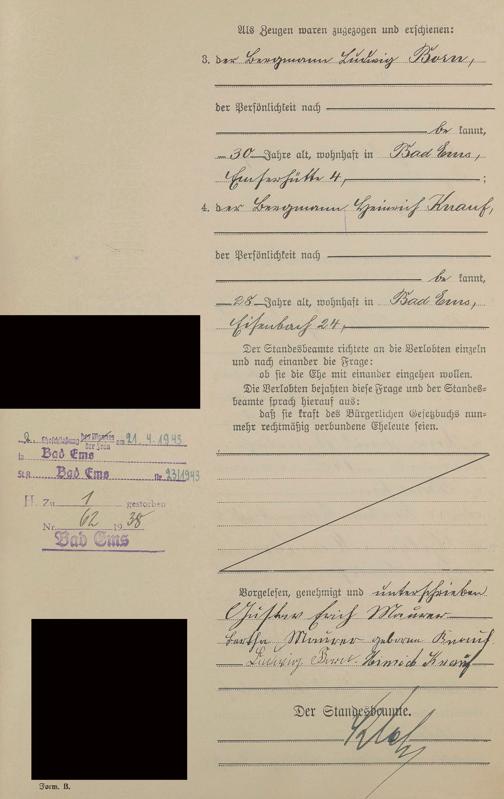 Als Zeugen waren zugezogen und erschienen:
3. der Bergmann Ludwig Born,
der Persönlichkeit nach
be kannt,
30 Jahre alt, wohnhaft in Bad Ems,
Emserhütte 4, ;
4. der Bergmann Heinrich Knauf,
der Persönlichkeit nach
be kannt,
28 Jahre alt, wohnhaft in Bad Ems,
Eisenbach 24,
Der Standesbeamte richtete an die Verlobten einzeln
und nach einander die Frage:
ob sie die Ehe mit einander eingehen wollen.
Die Verlobten bejahten diese Frage und der Standes=
beamte sprach hierauf aus:
daß sie kraft des Bürgerlichen Gesetzbuchs nun=
mehr rechtmäßig verbundene Eheleute seien.
2. Eheschließung des Mannes der Frau am 21. 4. 1943
in Bad Ems
St.A. Bad Ems Nr. 23/1943
H. Zu 1 gestorben
Nr. 62 1938
Bad Ems
Vorgelesen, genehmigt und unterschrieben
Gustav Erich Maurer
Bertha Maurer geborene Knauf
Ludwig Born. Heinrich Knauf
Der Standesbeamte.
Form. B.